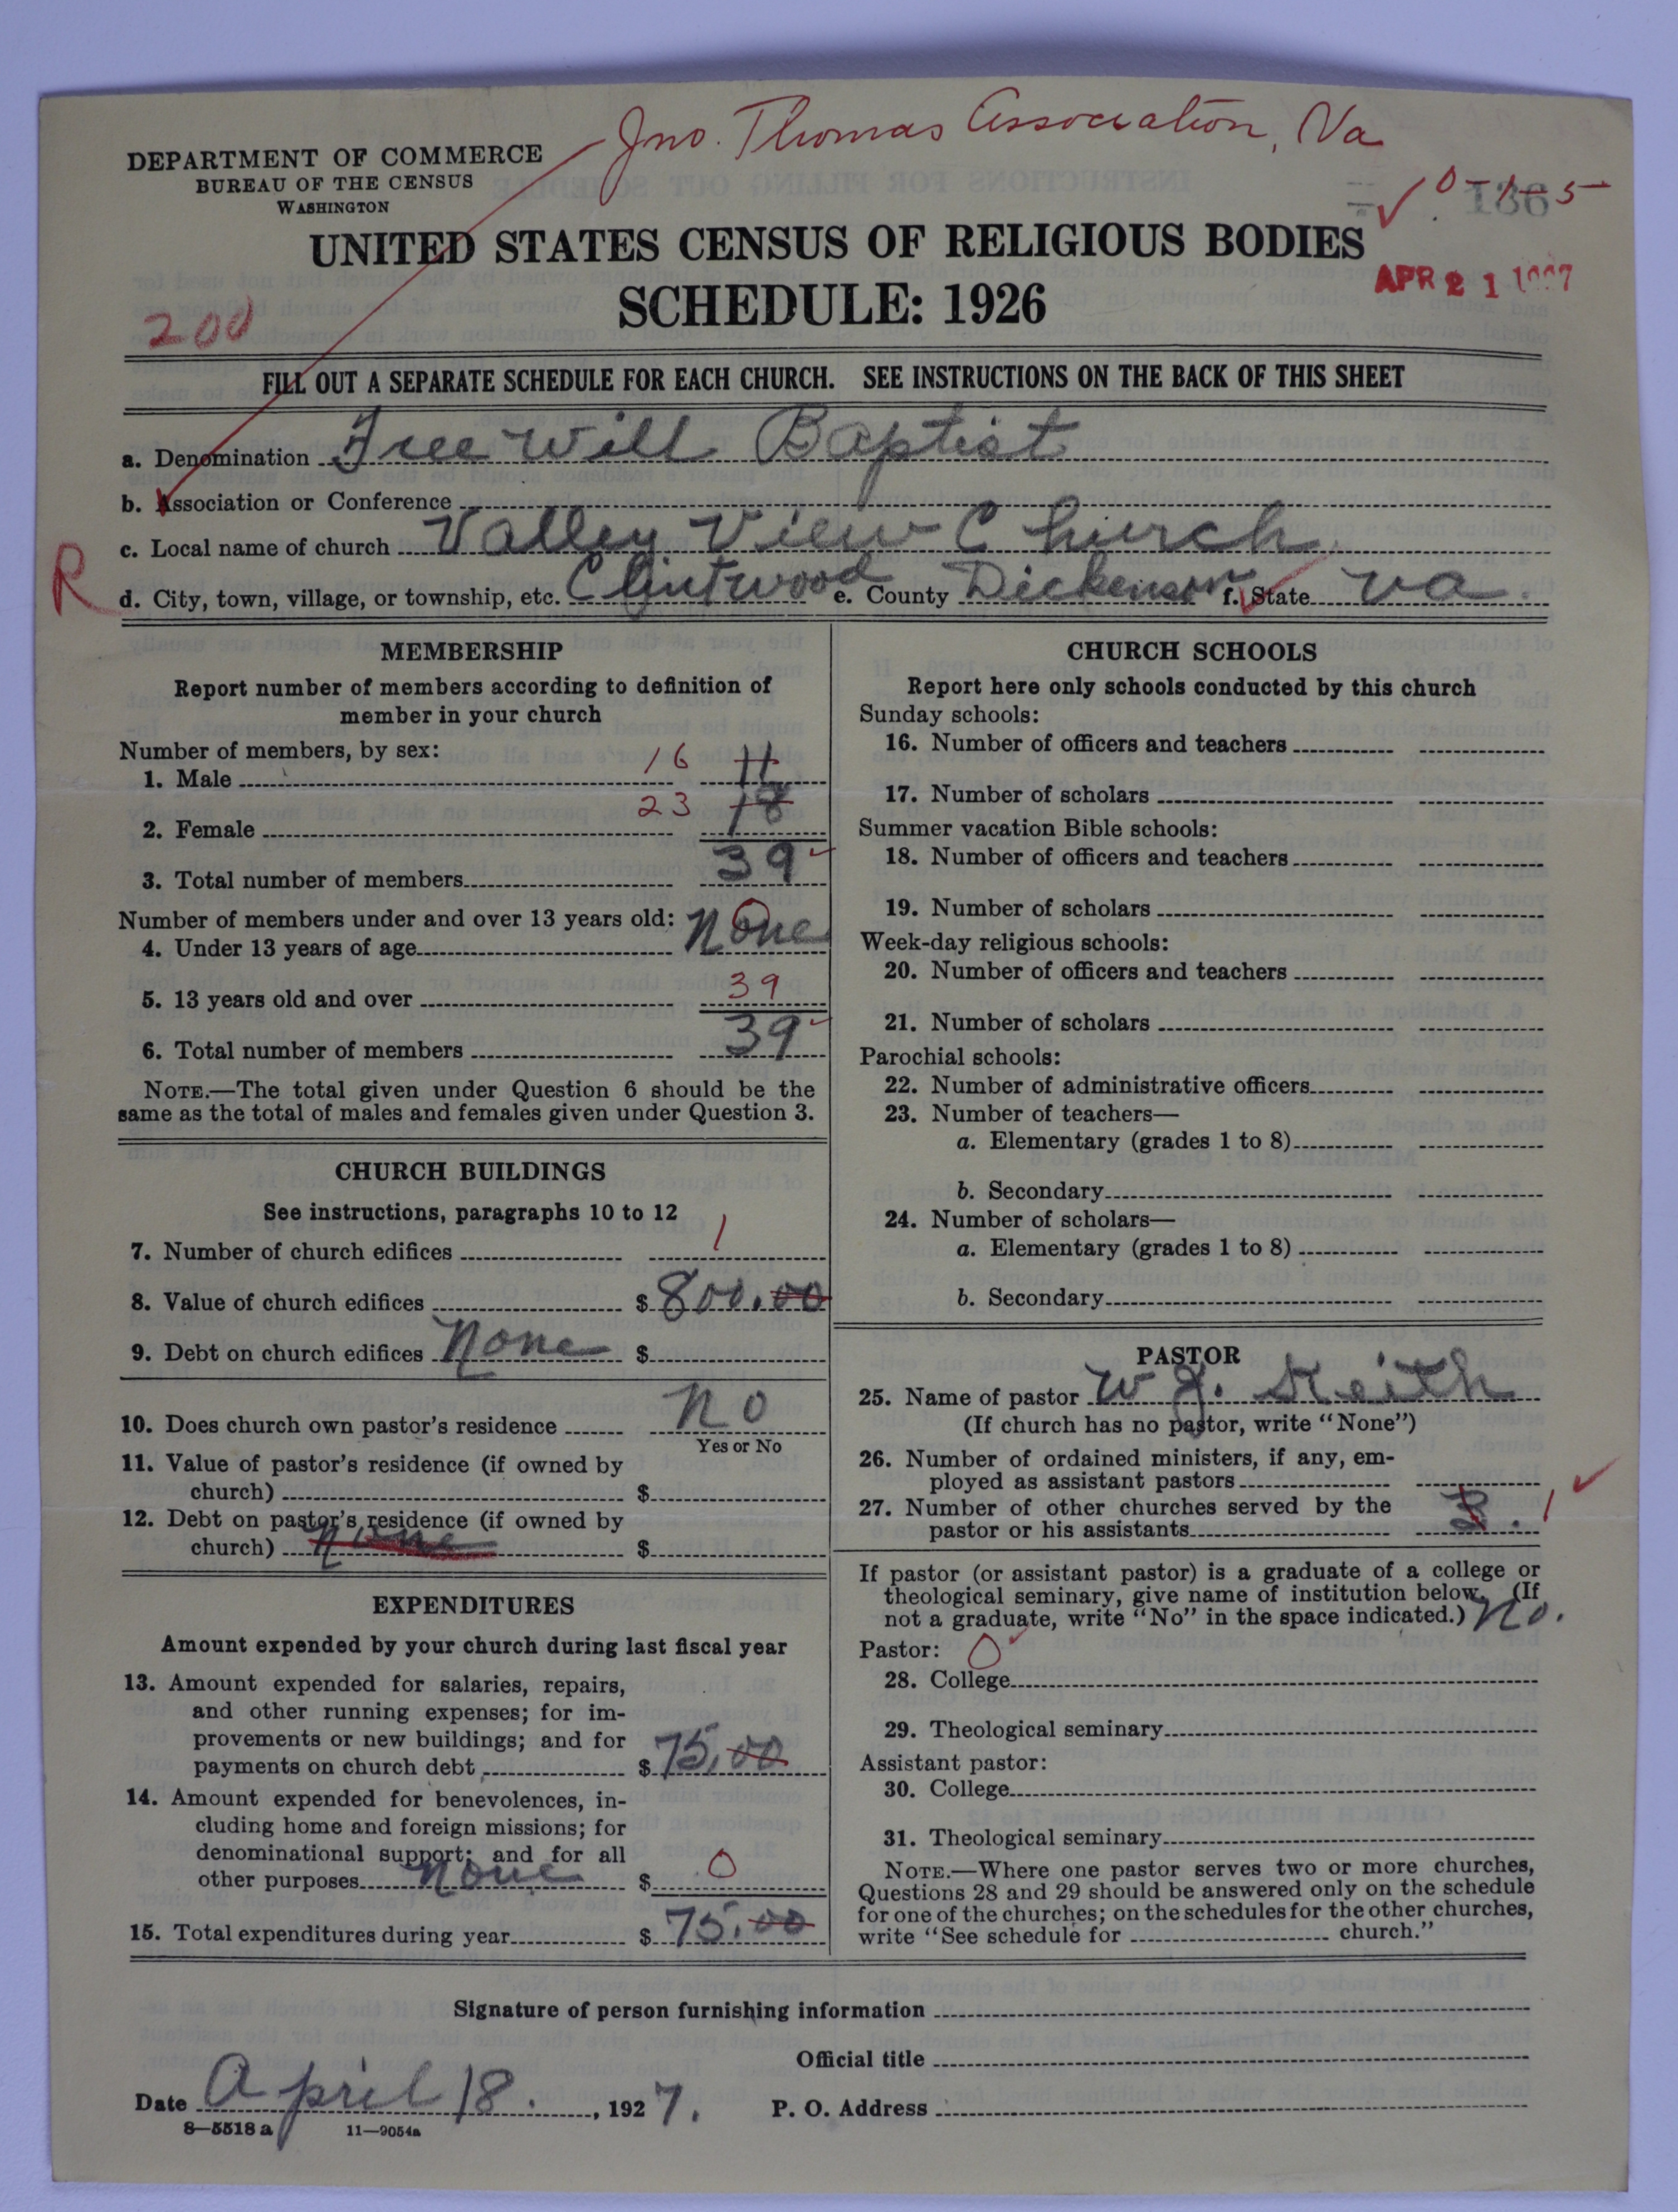 Jno. Thomas Association, Va
DEPARTMENT OF COMMERCE
BUREAU OF THE CENSUS
WASHINGTON
0-1-5
136
UNITED STATES CENSUS OF RELIGIOUS BODIES
SCHEDULE: 1926
APR 21 1927
200
FILL OUT A SEPARATE SCHEDULE FOR EACH CHURCH. SEE INSTRUCTIONS ON THE BACK OF THIS SHEET
a. Denomination Free Will Baptist
b. Association or Conference
c. Local name of church Valley View Church
R
d. City, town, village, or township, etc. Clintwood e. County Dickenson f. State Va.
MEMBERSHIP
Report number of members according to definition of
member in your church
Number of members, by sex:
1. Male 16 11
2. Female 23 18
3. Total number of members 39
Number of members under and over 13 years old:
4. Under 13 years of age None 0
5. 13 years old and over 39
6. Total number of members 39
NOTE.—The total given under Question 6 should be the
same as the total of males and females given under Question 3.
CHURCH BUILDINGS
See instructions, paragraphs 10 to 12
7. Number of church edifices 1
8. Value of church edifices $ 800.00
9. Debt on church edifices None $
10. Does church own pastor's residence No
Yes or No
11. Value of pastor's residence (if owned by
church) $
12. Debt on pastor's residence (if owned by
church) none $
EXPENDITURES
Amount expended by your church during last fiscal year
13. Amount expended for salaries, repairs,
and other running expenses; for im-
provements or new buildings; and for
payments on church debt $ 75.00
14. Amount expended for benevolences, in-
cluding home and foreign missions; for
denominational support; and for all
other purposes none $ 0
15. Total expenditures during year $ 75.00
CHURCH SCHOOLS
Report here only schools conducted by this church
Sunday schools:
16. Number of officers and teachers
17. Number of scholars
Summer vacation Bible schools:
18. Number of officers and teachers
19. Number of scholars
Week-day religious schools:
20. Number of officers and teachers
21. Number of scholars
Parochial schools:
22. Number of administrative officers
23. Number of teachers—
a. Elementary (grades 1 to 8)
b. Secondary
24. Number of scholars—
a. Elementary (grades 1 to 8)
b. Secondary
PASTOR
25. Name of pastor W. J. Keith
(If church has no pastor, write "None")
26. Number of ordained ministers, if any, em-
ployed as assistant pastors
27. Number of other churches served by the
pastor or his assistants 3. 1
If pastor (or assistant pastor) is a graduate of a college or
theological seminary, give name of institution below. (If
not a graduate, write "No" in the space indicated.) No.
Pastor: 0
28. College
29. Theological seminary
Assistant pastor:
30. College
31. Theological seminary
NOTE.—Where one pastor serves two or more churches,
Questions 28 and 29 should be answered only on the schedule
for one of the churches; on the schedules for the other churches,
write "See schedule for church."
Signature of person furnishing information
Official title
Date April 18. , 1927.
P. O. Address
8—5518 a 11—9054a